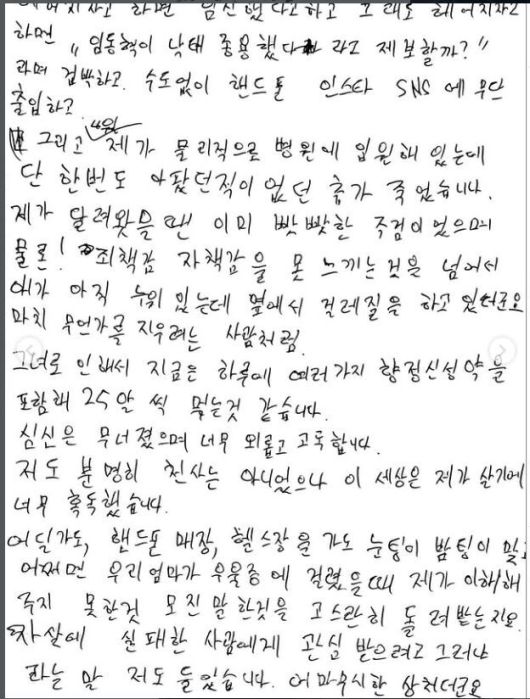 헤어지자고 하면 임신했다고 하고 그래도 헤어지자고
하면 "임동혁이 낙태 종용했다 라고 제보할까?"
라며 겁박하고. 수도없이 핸드폰 인스타 SNS에 무단
출입하고.
그리고 "왜 제가 물리적으로 병원에 입원해 있는데
단 한번도 아팠던적이 없던 츄가 죽었습니다.
제가 달려왔을땐 이미 빳빳한 주검이었으며
물론! 죄책감 자책감을 못 느끼는것을 넘어서
애가 아직 누워 있는데 옆에서 걸레질을 하고 있더군요
마치 무언가를 지우려는 사람처럼.
그녀로 인해서 지금은 하루에 여러가지 향정신성 약을
포함해 25알 씩 먹는것 같습니다.
심신은 무너졌으며 너무 외롭고 고독합니다.
저도 분명히 천사는 아니었으나 이 세상은 제가 살기에
너무 혹독했습니다.
어딜가도, 핸드폰 매장, 헬스장을 가도 눈팅이 밤팅이 맞고
어쩌면 우리엄마가 우울증에 걸렸을때 제가 이해해
주지 못한것 모진 말 한것을 고스란히 돌려받는지요.
자살에 실패한 사람에게 관심 받으려고 그러냐
라는 말 저도 들었습니다. 어마무시한 상처더군요